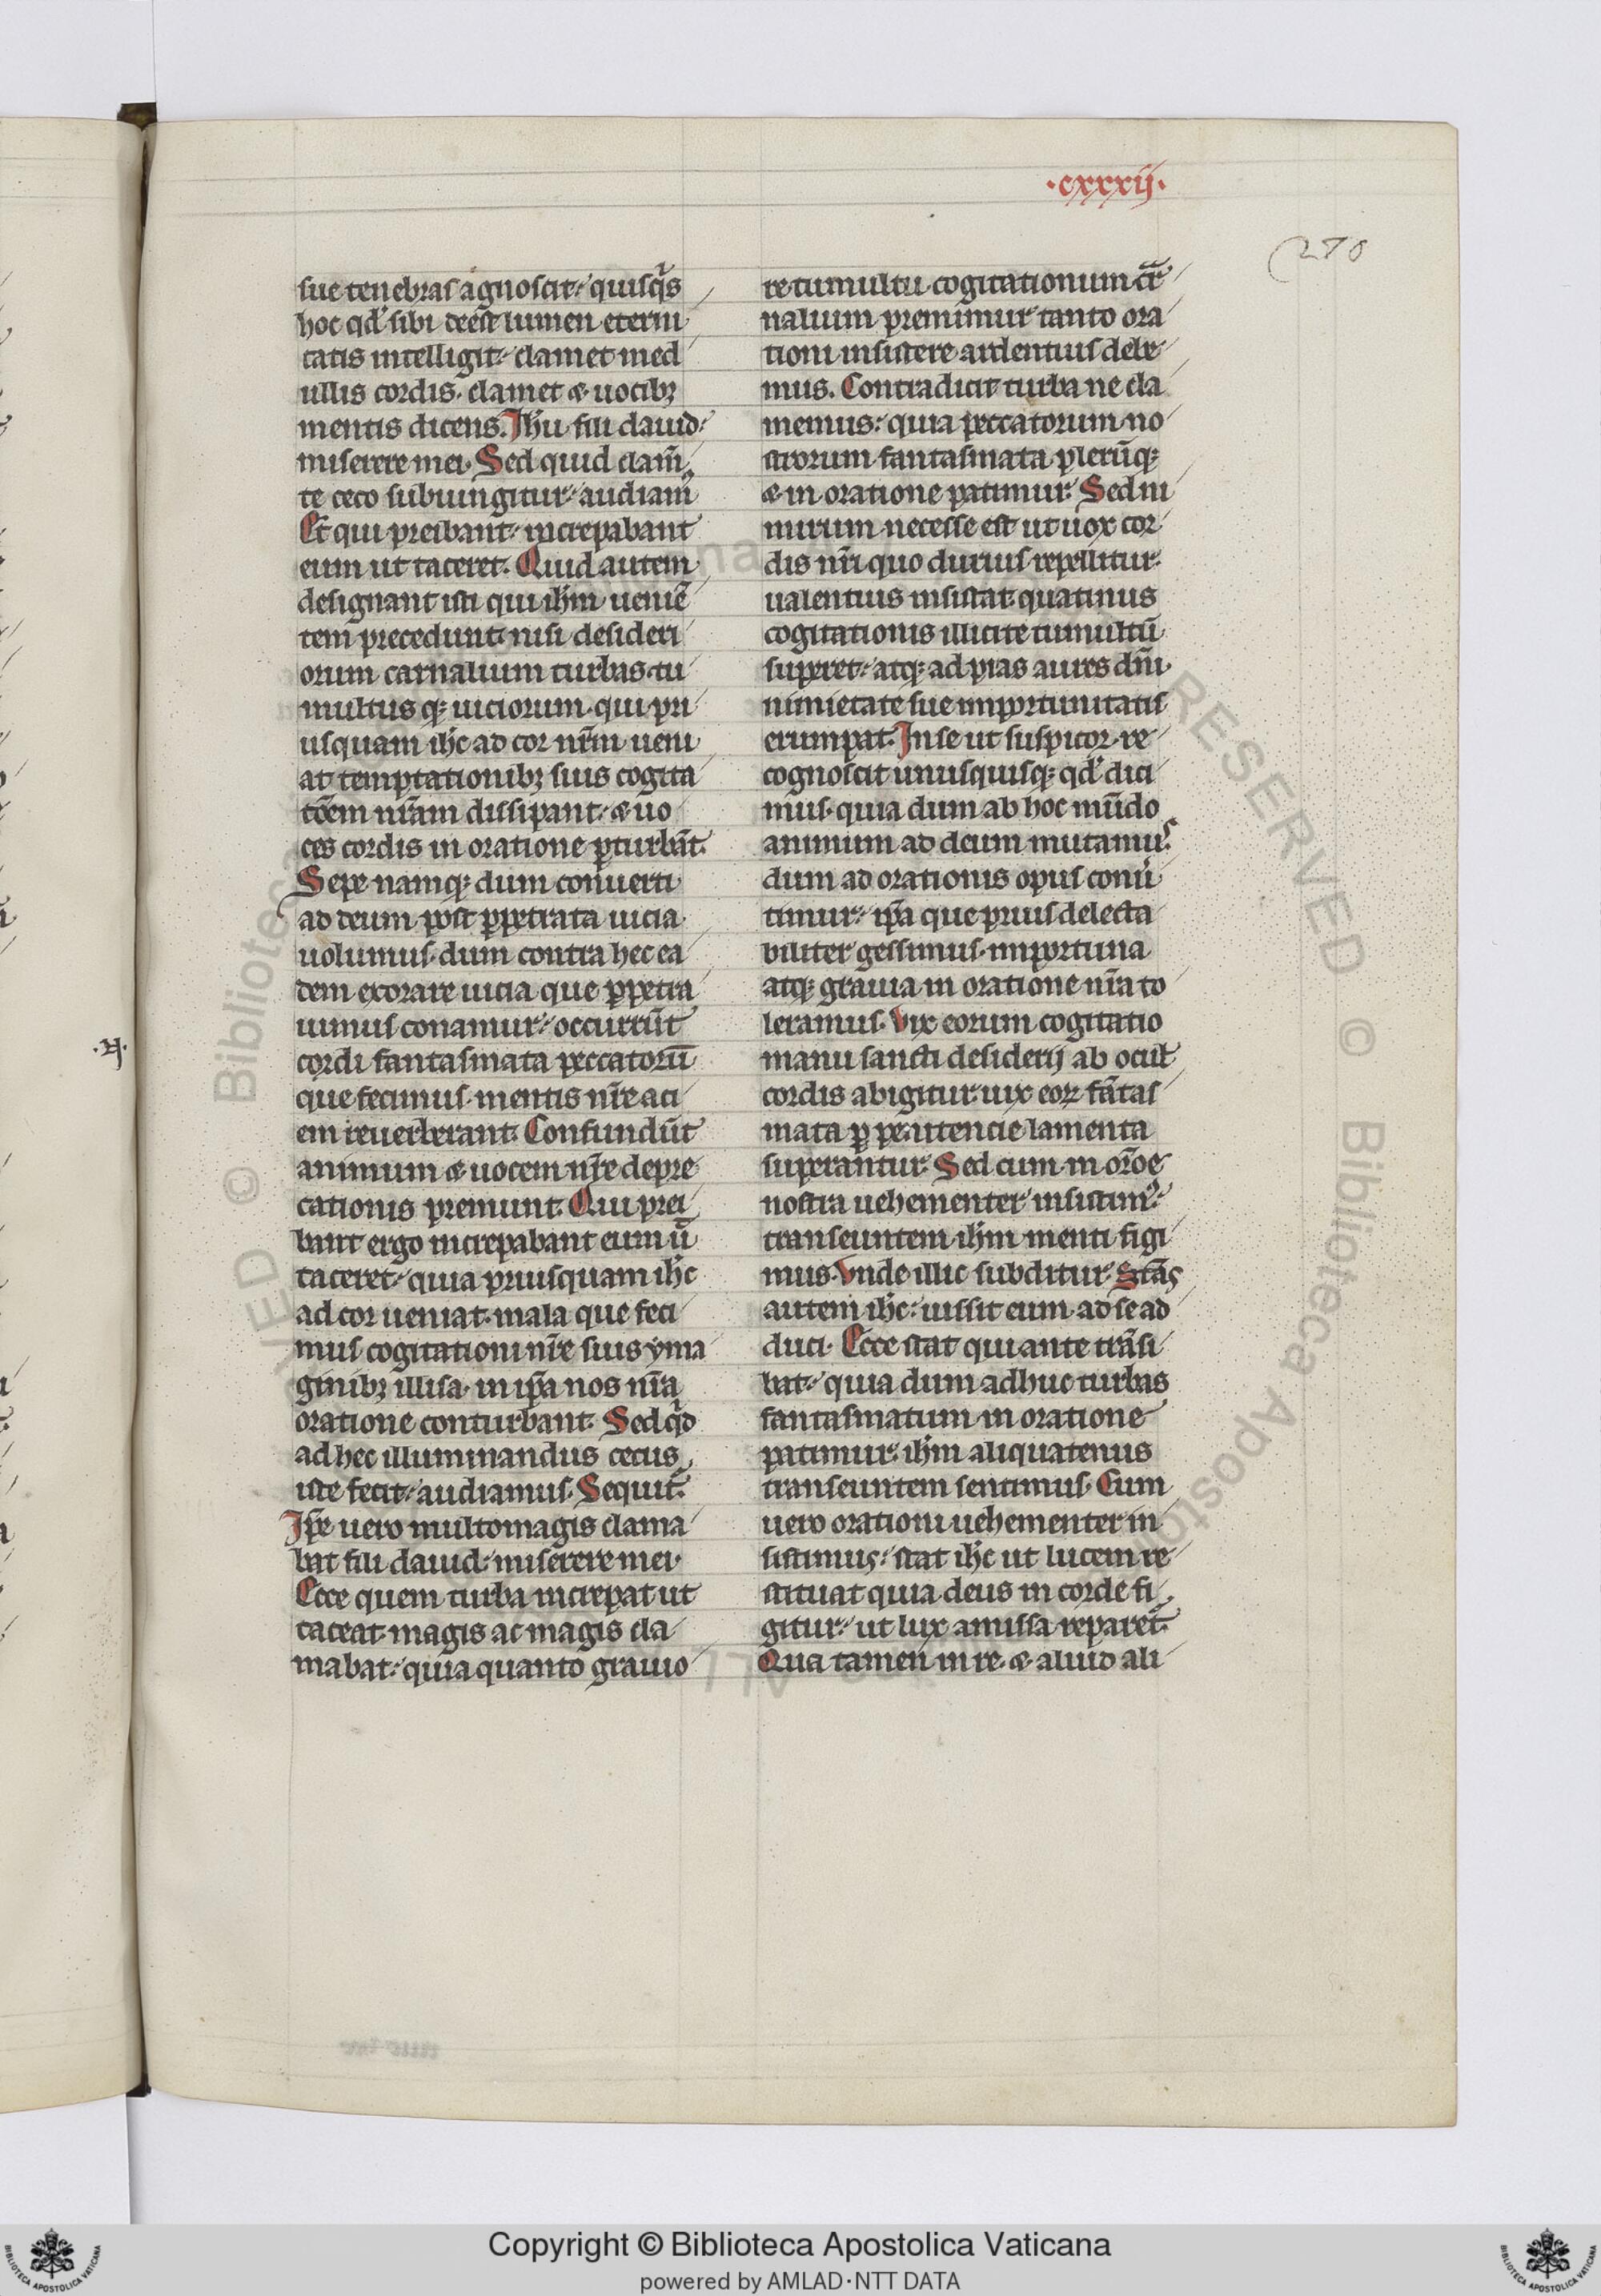 ·cxxxij·
270
sue tenebras agnoscit· quisq̾s
hoc qđ sibi deest lumen eterni
tatis intelligit· clamet med
ullis cordis· clamet & uocibꝫ
mentis dicens. Ihu fili dauid·
miserere mei. Sed quid clam̃
te ceco subiungitur· audiam᷒
Et qui preibant· increpabant
eum ut taceret. Quid autem
designant isti qui ihm ueniẽ
tem precedunt· nisi desideri
orum carnalium turbas· tu
multus qꝫ uiciorum· qui pri
usquam ihc ad cor nr̃m ueni
at temptationibꝫ suis cogita
tõem nr̃am dissipant· & uo
ces cordis in oratione ꝑturbãt.
Sepe namqꝫ dum conuerti
ad deum post ꝑpetrata uicia
uolumus· dum contra hec ea
dem exorare uicia que ꝑpetra
uimus conamur· occurrũt
cordi fantasmata peccatorũ
que fecimus· mentis nr̃e aci
em reuerberant. Confundũt
animum & uocem nr̃e depre
cationis premunt. Qui prei
bant ergo increpabant eum ũ
taceret· quia priusquam ihc
ad cor ueniat· mala que feci
mus cogitationi nr̃e suis yma
ginibꝫ illisa· in ip̃a nos nr̃a
oratione conturbant. Sed qͥd
ad hec illuminandus cecus
iste fecit· audiamus. Sequit᷑.
Ip̃e uero multomagis clama
bat fili dauid· miserere mei.
Ecce quem turba increpat ut
taceat· magis ac magis cla
mabat· quia quanto grauio
re tumultu cogitationum cr̃
nalium premimur tanto ora
tioni insistere ardentius debe
mus. Contradicit turba ne cla
memus· quia peccatorum no
strorum fantasmata ꝑlerũqꝫ
& in oratione patimur. Sed ni
mirum necesse est ut uox cor
dis nr̃i quo durius repellitur·
ualentius insistat· quatinus
cogitationis illicite tumultũ
superet· atqꝫ ad pias aures dñi
nimietate sue importunitatis
erumpat. In se ut suspicor re
cognoscit unusquisqꝫ qđ dici
mus· quia dum ab hoc mũdo
animum ad deum mutamus·
dum ad orationis opus conũ
timur· ip̃a que prius delecta
biliter gessimus· importuna
atqꝫ grauia in oratione nr̃a to
leramus. Vix eorum cogitatio
manu sancti desiderij ab ocul᷒
cordis abigitur· uix eoꝝ fãtas
mata ꝑ penitencie lamenta
superantur. Sed cum in orõe
nostra uehementer insistim᷒·
transeuntem ihm menti figi
mus. Vnde illic subditur. Stãs
autem ihc· iussit eum ad se ad
duci. Ecce stat qui ante trãsi
bat· quia dum adhuc turbas
fantasmatum in oratione
patimur· ihm aliquatenus
transeuntem sentimus. Cum
uero orationi uehementer in
sistimus· stat ihc ut lucem re
stituat quia deus in corde fi
gitur· ut lux amissa reparet᷑.
Qua tamen in re & aliud ali
Copyright © Biblioteca Apostolica Vaticana
powered by AMLAD·NTT DATA